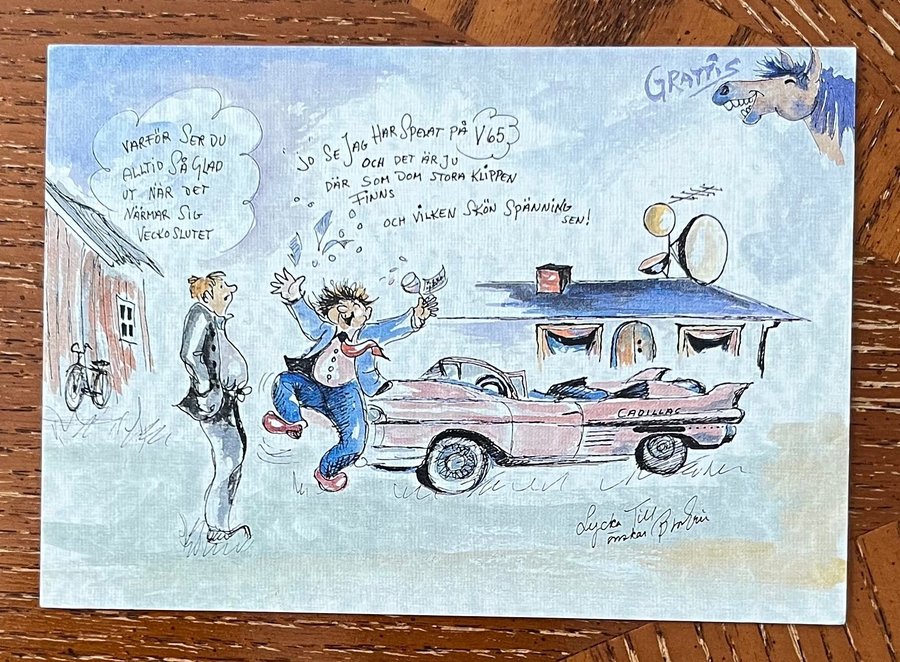 GRATTIS
VARFÖR SER DU
ALLTID SÅ GLAD
UT NÄR DET
NÄRMAR SIG
VECKOSLUTET
JO SE JAG HAR SPELAT PÅ V65
OCH DET ÄR JU
DÄR SOM DOM STORA KLIPPEN
FINNS
OCH VILKEN SKÖN SPÄNNING
SEN!
CADILLAC
Lycka Till
önskar